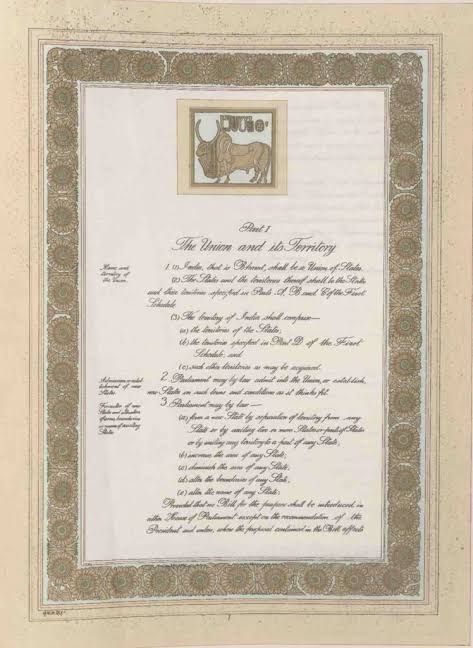 Part I
The Union and its Territory
Name and territory of the Union.
1 (1) India, that is Bharat, shall be a Union of States.
(2) The States and the territories thereof shall be the States
and their territories specified in Parts A, B and C of the First
Schedule.
(3) The territory of India shall comprise—
(a) the territories of the States;
(b) the territories specified in Part D of the First
Schedule; and
(c) such other territories as may be acquired.
Admission or establishment of new States.
2 Parliament may by law admit into the Union, or establish,
new States on such terms and conditions as it thinks fit.
Formation of new States and alteration of areas, boundaries or names of existing States.
3 Parliament may by law—
(a) form a new State by separation of territory from any
State or by uniting two or more States or parts of States
or by uniting any territory to a part of any State;
(b) increase the area of any State;
(c) diminish the area of any State;
(d) alter the boundaries of any State;
(e) alter the name of any State;
Provided that no Bill for the purpose shall be introduced in
either House of Parliament except on the recommendation of the
President and unless, where the proposal contained in the Bill affects